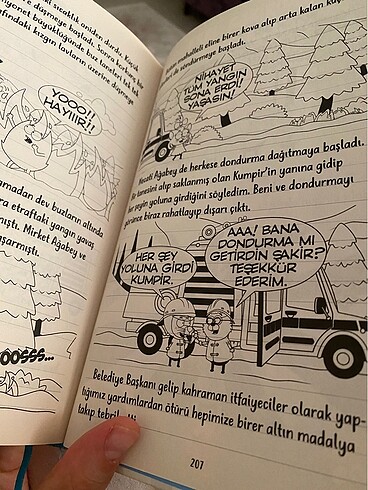 sıcaklık aniden durdu, küçük
düşmeye başladı. Sonra koskoca bir
büyüklüğünde buz taneleri tek tek
kızgın lavların üzerine düşmeye
YOOO!!
HAYIIIR!!
dev buzların altında
etraftaki yangın yavaş
Mirket Ağabey ve
başarmıştı.
mahalleli eline birer kova alıp arta kalan
de söndürmeye başladı.
NİHAYET
TÜM YANGIN
SONA ERDİ!
YAŞASIN!
Necati Ağabey de herkese dondurma dağıtmaya başladı.
Bir tanesini alıp saklanmış olan Kumpir'in yanına gidip
her şeyin yoluna girdiğini söyledim. Beni ve dondurmayı
görünce biraz rahatlayıp dışarı çıktı.
HER ŞEY
YOLUNA GİRDİ
KUMPİR.
AAA! BANA
DONDURMA MI
GETİRDİN ŞAKİR?
TEŞEKKÜR
EDERİM.
Belediye Başkanı gelip kahraman itfaiyeciler olarak yap-
tığımız yardımlardan ötürü hepimize birer altın madalya
takıp
207